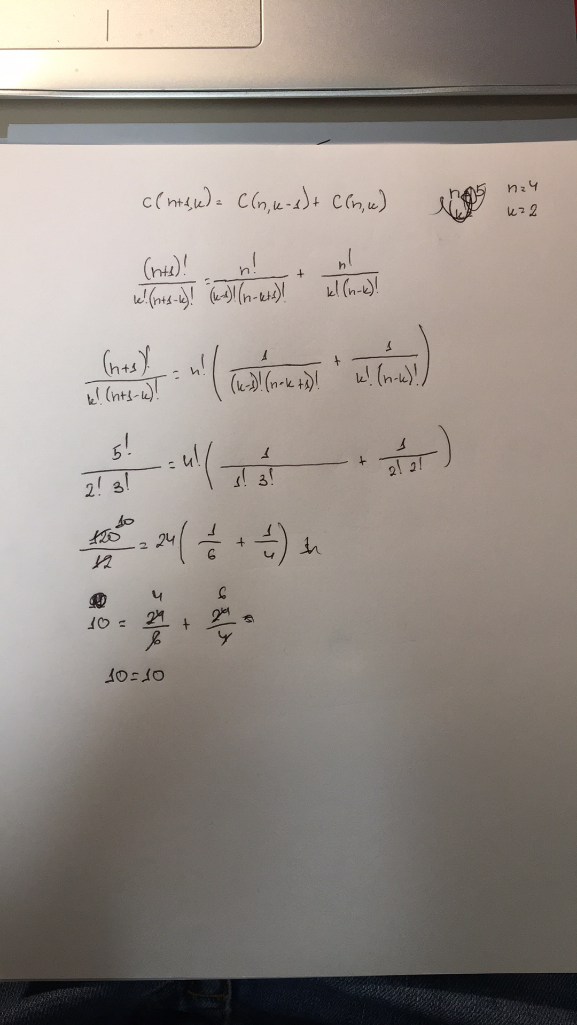 C(n+1,k) = C(n,k-1) + C(n,k) n=4
k=2
(n+1)!/k!(n+1-k)! = n!/(k-1)!(n-k+1)! + n!/k!(n-k)!
(n+1)!/k!(n+1-k)! = n!(1/(k-1)!(n-k+1)! + 1/k!(n-k)!)
5!/2! 3! = 4!(1/1! 3! + 1/2! 2!)
120/12 10 = 24(1/6 + 1/4)
4 6
10 = 24/6 + 24/4
10=10